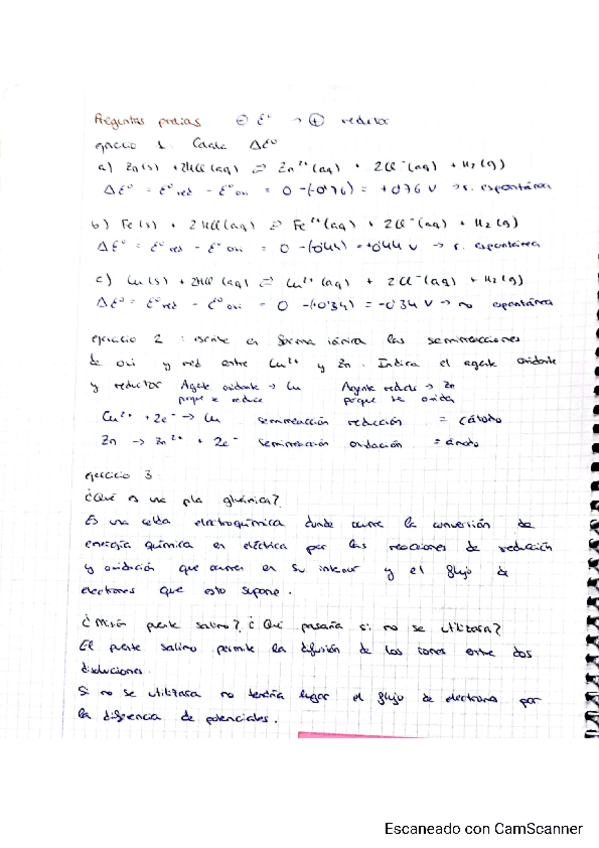 Preguntas previas ⊖ E° → ⊕ reductor
ejercicio 1. Calcula ΔE°
a) Zn(s) + 2HCl(aq) ⇌ Zn²⁺(aq) + 2Cl⁻(aq) + H₂(g)
ΔE° = E°red - E°oxi = 0 -(-0'76) = +0'76 V → r. espontánea
b) Fe(s) + 2HCl(aq) ⇌ Fe²⁺(aq) + 2Cl⁻(aq) + H₂(g)
ΔE° = E°red - E°oxi = 0 -(-0'44) = +0'44 V → r. espontánea
c) Cu(s) + 2HCl(aq) ⇌ Cu²⁺(aq) + 2Cl⁻(aq) + H₂(g)
ΔE° = E°red - E°oxi = 0 -(+0'34) = -0'34 V → no espontánea
ejercicio 2 : escribe en forma iónica las semirreacciones
de oxi y red entre Cu²⁺ y Zn. Indica el agente oxidante
y reductor Agente oxidante → Cu Agente reductor → Zn
porque se reduce porque se oxida
Cu²⁺ + 2e⁻ → Cu semirreacción reducción = cátodo
Zn → Zn²⁺ + 2e⁻ semirreacción oxidación = ánodo
ejercicio 3
¿Qué es una pila galvánica?
Es una celda electroquímica donde ocurre la conversión de
energía química en eléctrica por las reacciones de reducción
y oxidación que ocurren en su interior y el flujo de
electrones que esto supone.
¿Misión puente salino? ¿Qué pasaría si no se utilizara?
El puente salino permite la difusión de los iones entre dos
disoluciones.
Si no se utilizara no tendría lugar el flujo de electrones por
la diferencia de potenciales.
Escaneado con CamScanner